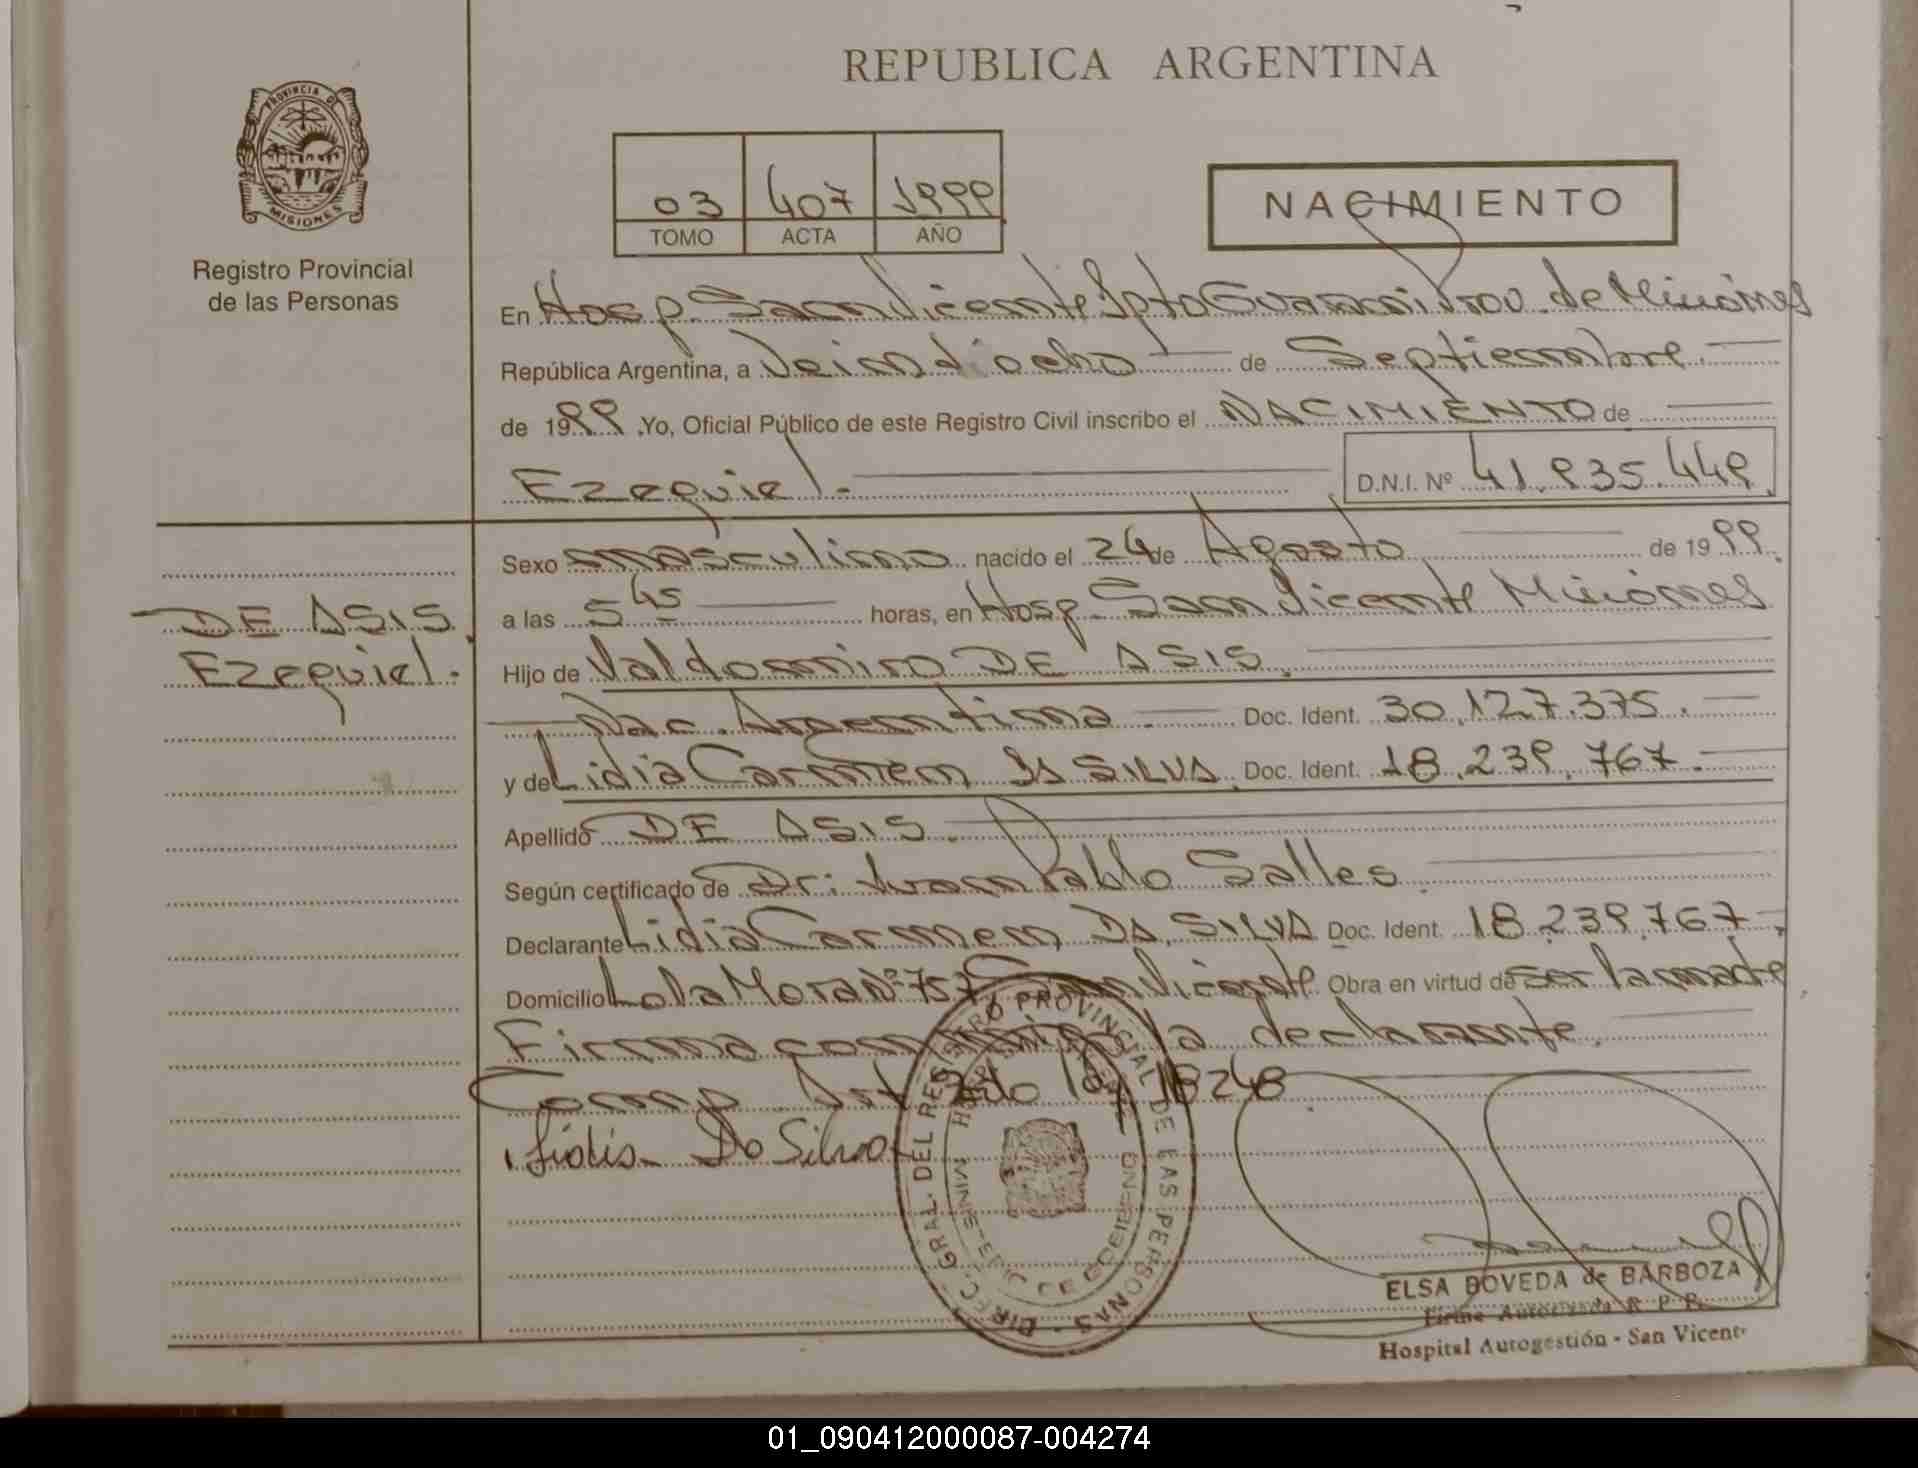 REPUBLICA ARGENTINA
PROVINCIA DE MISIONES
Registro Provincial
de las Personas
03 407 1999
TOMO ACTA AÑO
NACIMIENTO
En Hosp. San Vicente Dpto Guarani Prov. de Misiones
República Argentina, a Veintiocho de Septiembre
de 1999 .Yo, Oficial Público de este Registro Civil inscribo el NACIMIENTO de
Ezequiel.- D.N.I. Nº 41.935.449
DE ASIS
Ezequiel.
Sexo masculino nacido el 24 de Agosto de 1999.
a las 5 45 horas, en Hosp. San Vicente Misiones
Hijo de Valdomiro DE ASIS.
Nac. Argentina. Doc. Ident. 30.127.375.
y de Lidia Carmem DA SILVA. Doc. Ident. 18.239.767.
Apellido DE ASIS.
Según certificado de Dr: Juan Pablo Salles
Declarante Lidia Carmem DA SILVA Doc. Ident. 18.239.767
Domicilio Lola Mora Nº 757 San Vicente. Obra en virtud de ser la madre
Firma conmigo la declarante.
Comp. Art 2do ley 18248
Lidia Da Silva
DIREC. GRAL. DEL REGISTRO PROVINCIAL DE LAS PERSONAS
ELSA BOVEDA de BARBOZA
Firma Autorizada R. P. P.
Hospital Autogestión - San Vicente
01_090412000087-004274